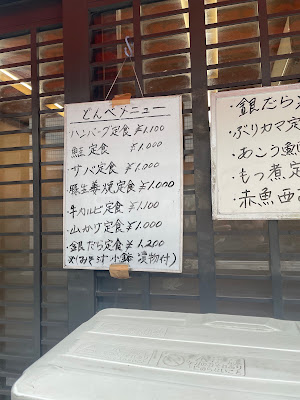 どんべメニュー
ハンバーグ定食 ¥1,100
鮭定食 ¥1,000
サバ定食 ¥1,000
豚生姜焼定食 ¥1,000
牛カルビ定食 ¥1,100
山かけ定食 ¥1,000
・銀だら定食 ¥1,200
(みそ汁 小鉢 漬物付)
・銀だら
・ぶりカマ定
・あこう鯛
・もつ煮定
・赤魚西